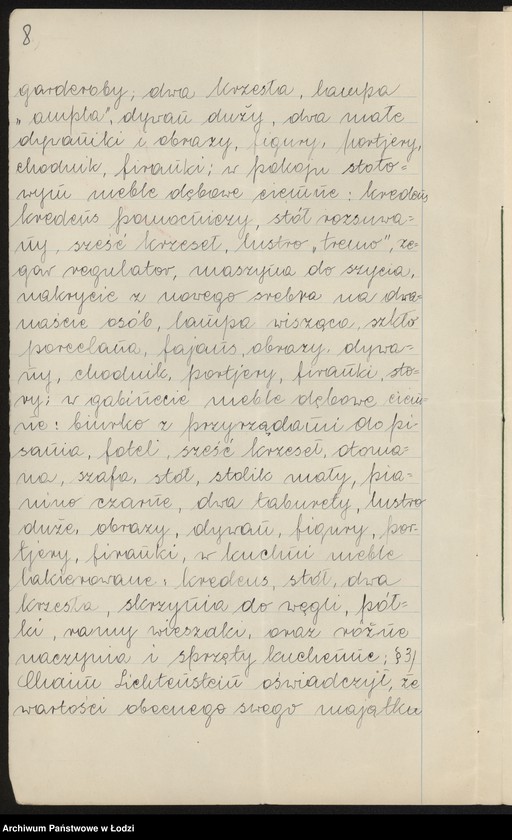 8
garderoby; dwa krzesła, lampa
„ampla", dywan duży, dwa małe
dywaniki i obrazy, figury, portjery,
chodnik, firanki; w pokoju stoło=
wym meble dębowe ciemne: kredens,
kredens pomocniczy, stół rozsuwa=
ny, sześć krzeseł, lustro „tremo", ze=
gar regulator, maszyna do szycia,
nakrycie z nowego srebra na dwa=
naście osób, lampa wisząca, szkło
porcelana, fajans, obrazy, dywa=
ny, chodnik, portjery, firanki, sto=
ry; w gabinecie meble dębowe ciem=
ne: biurko z przyrządami do pi=
sania, fotel, sześć krzeseł, otoma=
na, szafa, stół, stolik mały, pia=
nino czarne, dwa taburety, lustro
duże, obrazy, dywan, figury, por=
tjery, firanki, w kuchni meble
lakierowane: kredens, stół, dwa
krzesła, skrzynia do węgli, pół=
ki, ramy wieszaki, oraz różne
naczynia i sprzęty kuchenne; § 3/
Chaim Lichtenstein oświadczył, że
wartości obecnego swego majątku
Archiwum Państwowe w Łodzi